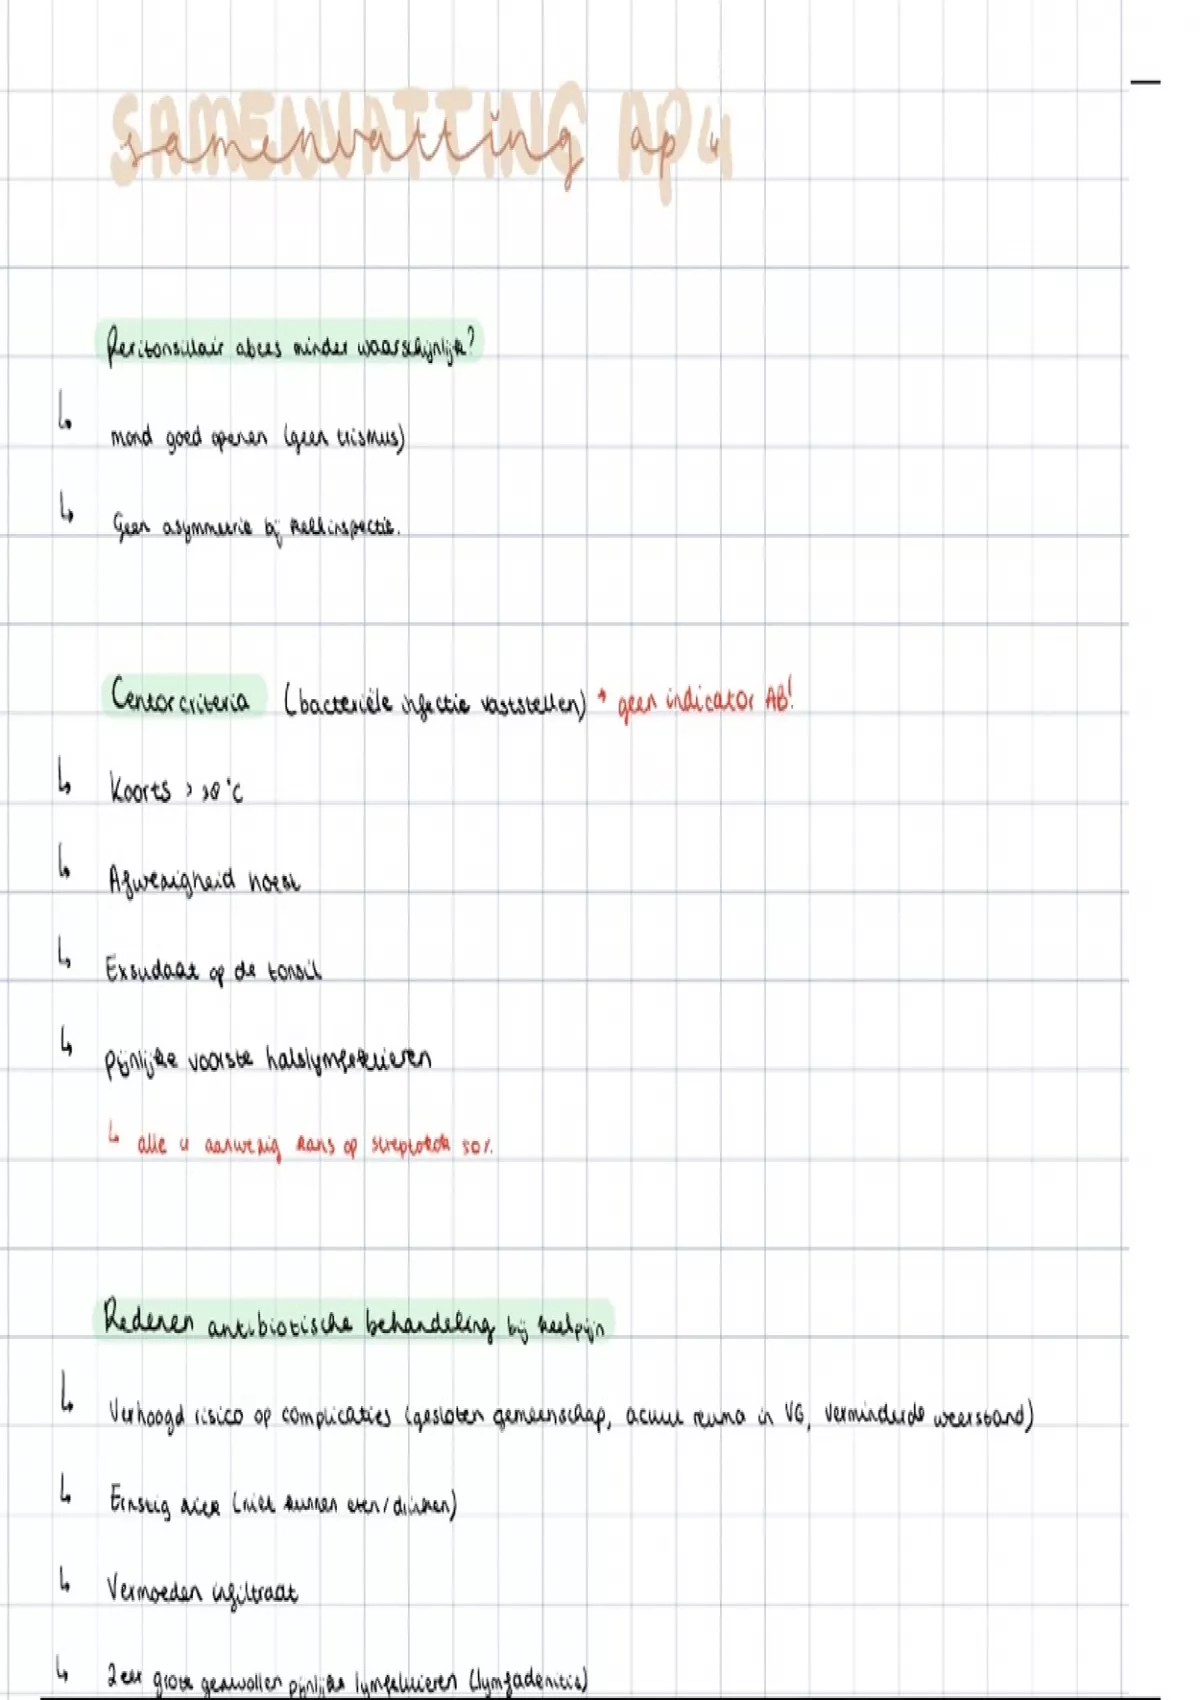 samenvatting ap 4
Peritonsillair abces minder waarschijnlijk?
↳ mond goed openen (geen trismus)
↳ Geen asymmetrie bij keelinspectie.
Centor criteria (bacteriële infectie vaststellen) → geen indicator AB!
↳ Koorts > 38°C
↳ Afwezigheid hoest
↳ Exsudaat op de tonsil
↳ pijnlijke voorste halslymfeklieren
↳ alle 4 aanwezig kans op streptokok 50%.
Redenen antibiotische behandeling bij keelpijn
↳ Verhoogd risico op complicaties (gesloten gemeenschap, acuut reuma in VG, verminderde weerstand)
↳ Ernstig ziek (niet kunnen eten/drinken)
↳ Vermoeden infiltraat
↳ Zeer grote gezwollen pijnlijke lymfeklieren (lymfadenitis)